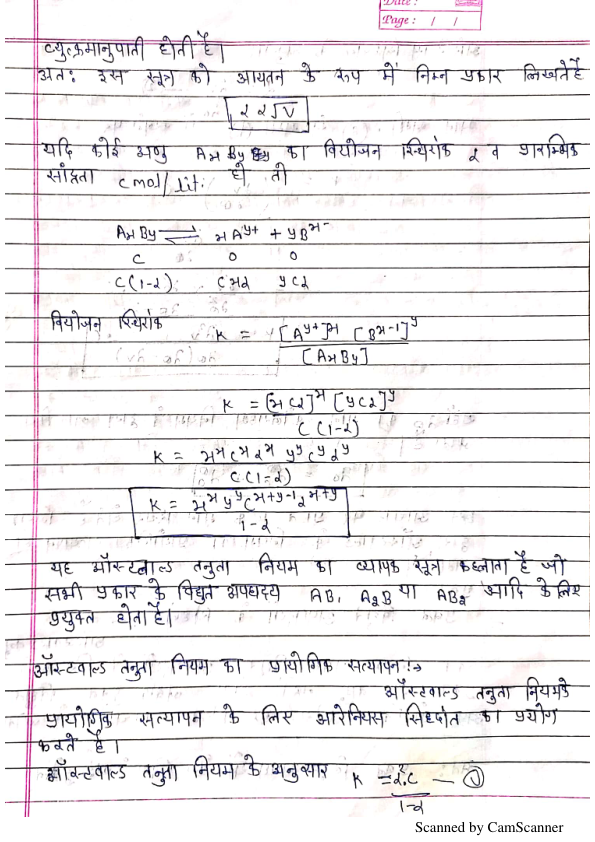 Date :
Page : / /
व्युत्क्रमानुपाती होती है।
अतः इस सूत्र को आयतन के रूप में निम्न प्रकार लिखते है
α α √V
यदि कोई अणु AxBy का वियोजन स्थिरांक α व प्रारम्भिक
सांद्रता c mol/lit. हो तो
AxBy ⇌ xA^y+ + yB^x-
C 0 0
C(1-α) Cxα yCα
वियोजन स्थिरांक K = [A^y+]^x [B^x-1]^y
[AxBy]
K = [xCα]^x [yCα]^y
C(1-α)
K = x^x C^x α^x y^y C^y α^y
C(1-α)
K = x^x y^y C^x+y-1 α^x+y
1-α
यह ऑस्टवाल्ड तनुता नियम का व्यापक सूत्र कहलाता है जो
सभी प्रकार के विद्युत अपघट्य AB, A₂B या AB₂ आदि के लिए
प्रयुक्त होता है।
ऑस्टवाल्ड तनुता नियम का प्रायोगिक सत्यापन :→
ऑस्टवाल्ड तनुता नियम के
प्रायोगिक सत्यापन के लिए आरेनियस सिद्धांत का प्रयोग
करते है।
ऑस्टवाल्ड तनुता नियम के अनुसार K = α²C — ①
1-α
Scanned by CamScanner